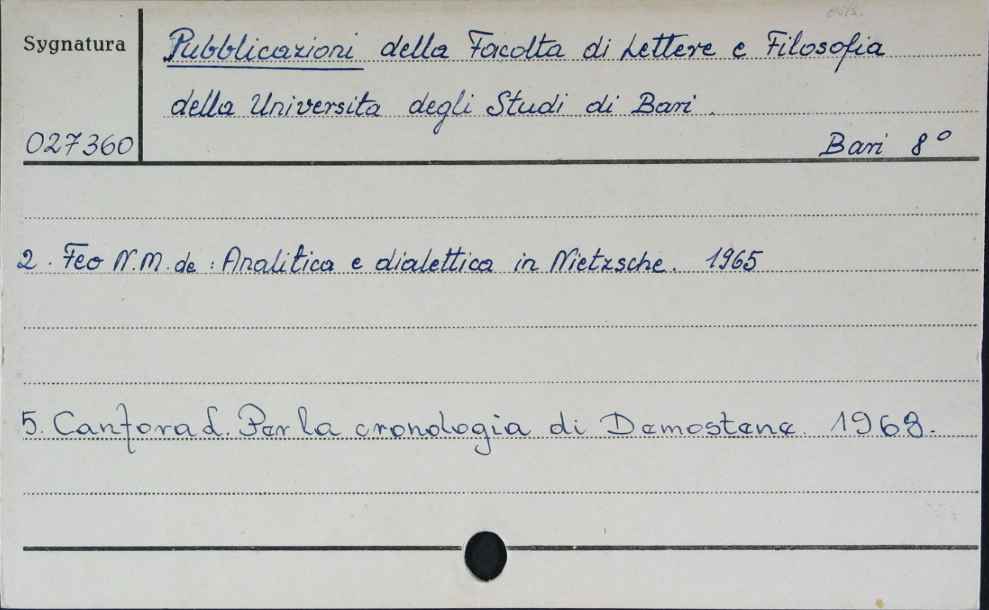 Sygnatura
Pubblicazioni della Facolta di Lettere e Filosofia
della Universita degli Studi di Bari.
027360
Bari 8°
2. Feo N.M. de : Analitica e dialettica in Nietzsche. 1965
5. Canfora L. Per la cronologia di Demostene. 1968.